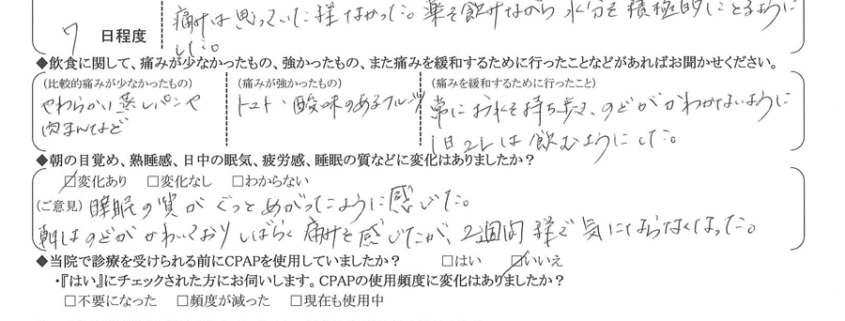 痛みは思っていた程なかった。薬を飲みながら水分を積極的にとるように
7 日程度
した。
◆飲食に関して、痛みが少なかったもの、強かったもの、また痛みを緩和するために行ったことなどがあればお聞かせください。
(比較的痛みが少なかったもの) (痛みが強かったもの) (痛みを緩和するために行ったこと)
やわらかい蒸しパンや トマト・酸味のあるフルーツ 常にお水を持ち歩き、のどがかわかないように
肉まんなど 1日2Lは飲むようにした。
◆朝の目覚め、熟睡感、日中の眠気、疲労感、睡眠の質などに変化はありましたか?
☑変化あり □変化なし □わからない
(ご意見) 睡眠の質がぐっとあがったように感じた。
朝はのどがかわいておりしばらく痛みを感じたが、2週間程で気にならなくなった。
◆当院で診療を受けられる前にCPAPを使用していましたか? □はい ☑いいえ
・『はい』にチェックされた方にお伺いします。CPAPの使用頻度に変化はありましたか?
□不要になった □頻度が減った □現在も使用中